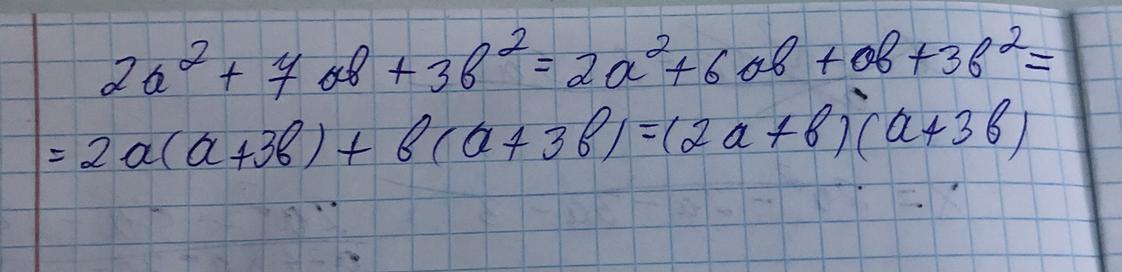 2a² + 7ab + 3b² = 2a² + 6ab + ab + 3b² =
= 2a(a+3b) + b(a+3b) = (2a+b)(a+3b)